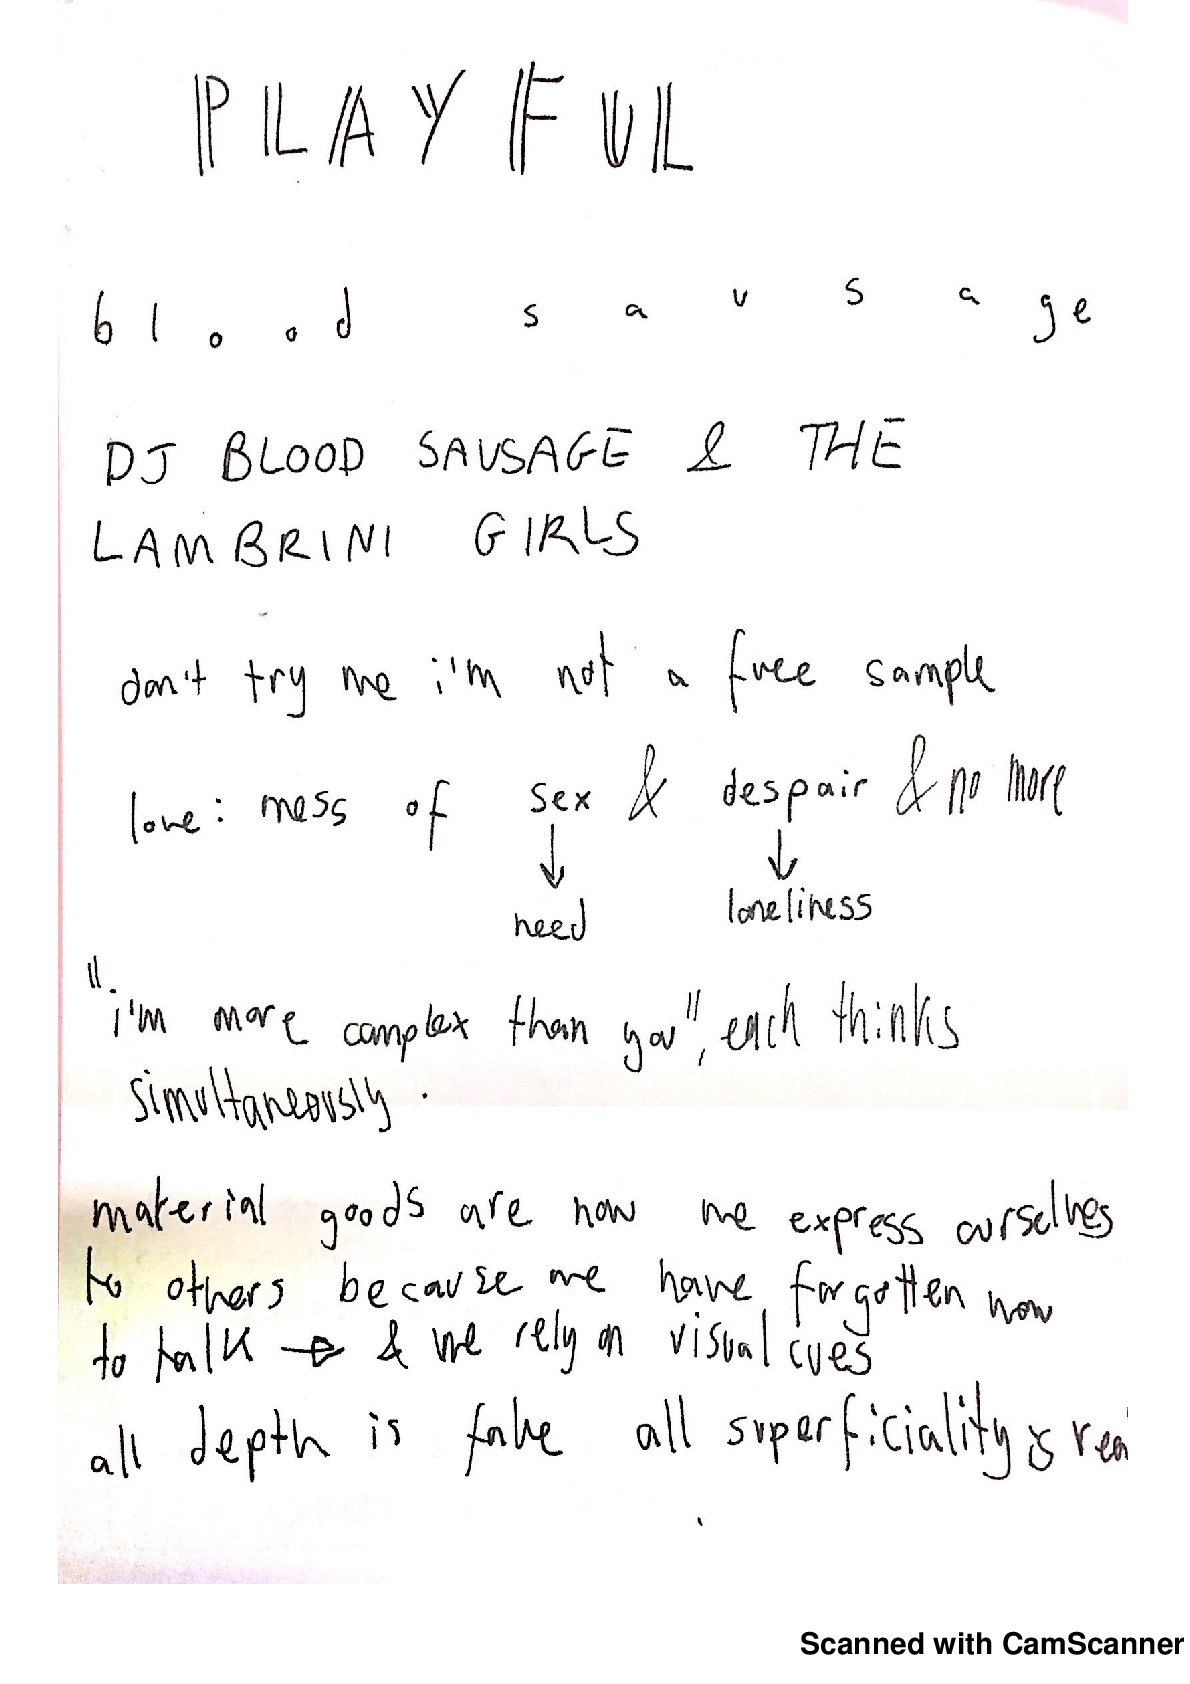 PLAYFUL
blood sausage
DJ BLOOD SAUSAGE & THE
LAMBRINI GIRLS
don't try me i'm not a free sample
love: mess of sex & despair & no more
↓ ↓
need loneliness
"i'm more complex than you", each thinks
simultaneously.
material goods are how we express ourselves
to others because we have forgotten how
to talk → & we rely on visual cues
all depth is fake all superficiality is real
Scanned with CamScanner